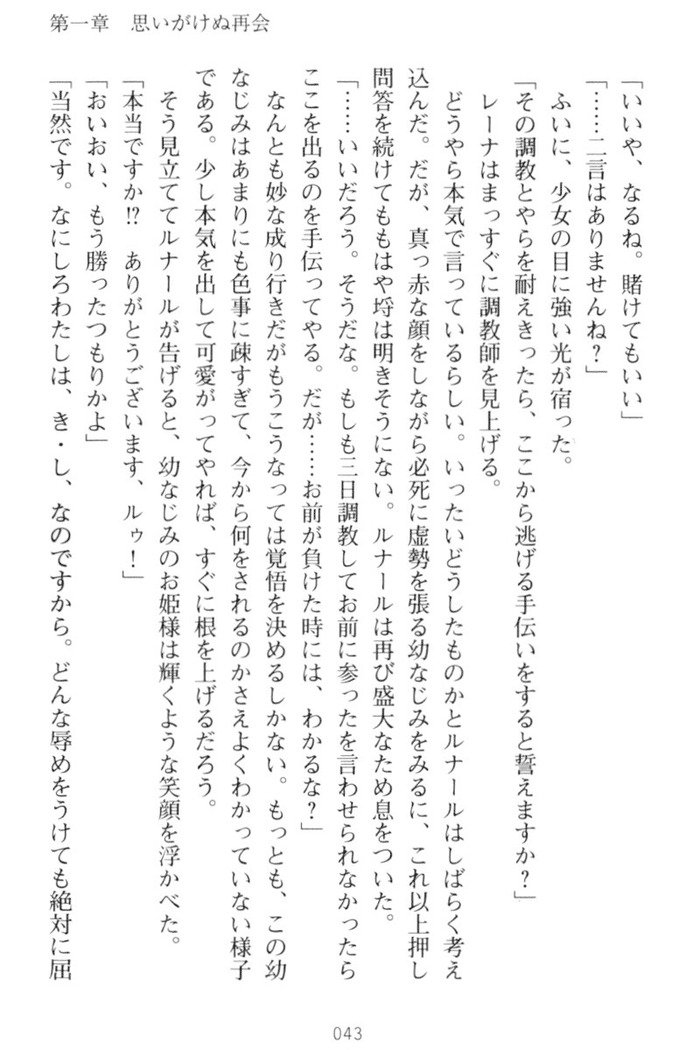 第一章　思いがけぬ再会
「いいや、なるね。賭けてもいい」
「……二言はありませんね？」
　ふいに、少女の目に強い光が宿った。
「その調教とやらを耐えきったら、ここから逃げる手伝いをすると誓えますか？」
　レーナはまっすぐに調教師を見上げる。
　どうやら本気で言っているらしい。いったいどうしたものかとルナールはしばらく考え
込んだ。だが、真っ赤な顔をしながら必死に虚勢を張る幼なじみをみるに、これ以上押し
問答を続けてももはや埒は明きそうにない。ルナールは再び盛大なため息をついた。
「……いいだろう。そうだな。もしも三日調教してお前に参ったを言わせられなかったら
ここを出るのを手伝ってやる。だが……お前が負けた時には、わかるな？」
　なんとも妙な成り行きだがもうこうなっては覚悟を決めるしかない。もっとも、この幼
なじみはあまりにも色事に疎すぎて、今から何をされるのかさえよくわかっていない様子
である。少し本気を出して可愛がってやれば、すぐに根を上げるだろう。
　そう見立ててルナールが告げると、幼なじみのお姫様は輝くような笑顔を浮かべた。
「本当ですか!?　ありがとうございます、ルゥ！」
「おいおい、もう勝ったつもりかよ」
「当然です。なにしろわたしは、き・し、なのですから。どんな辱めをうけても絶対に屈
043